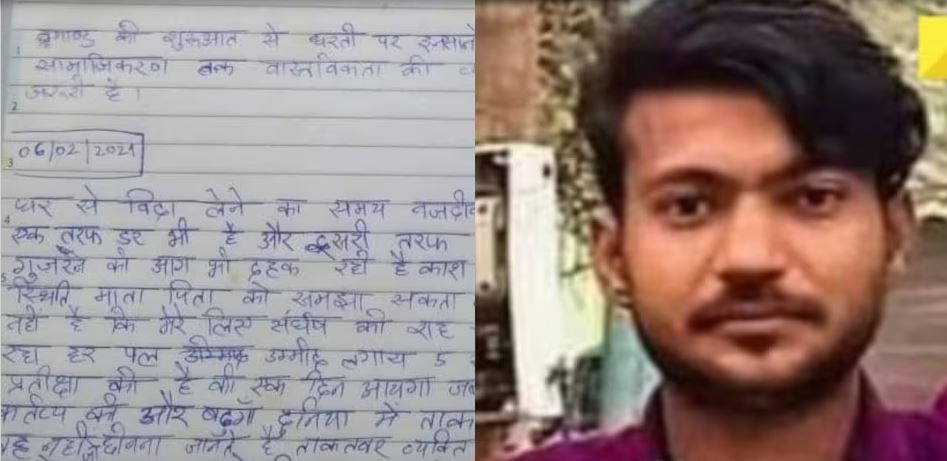 1 ब्रमाण्ड की शुरुआत से धरती पर इनसान
सामाजिकरण तक वास्तविकता की
2 जरूरी है।
3 06/02/2021
4 घर से विदा लेने का समय नजदीक
एक तरफ डर भी है और दूसरी तरफ
5 गुजरने की आग भी दहक रही है काश
स्थिति माता पिता को समझा सकता
नही है कि मेरे लिए संर्घष की राह
रहा हर पल उम्मीद लगाय 5
प्रतीक्षा की है की एक दिन आयगा जब
कर्तव्य की और बढुगाँ दुनिया मे ताकत
छीनना जानते है ताकतवर व्यक्ति